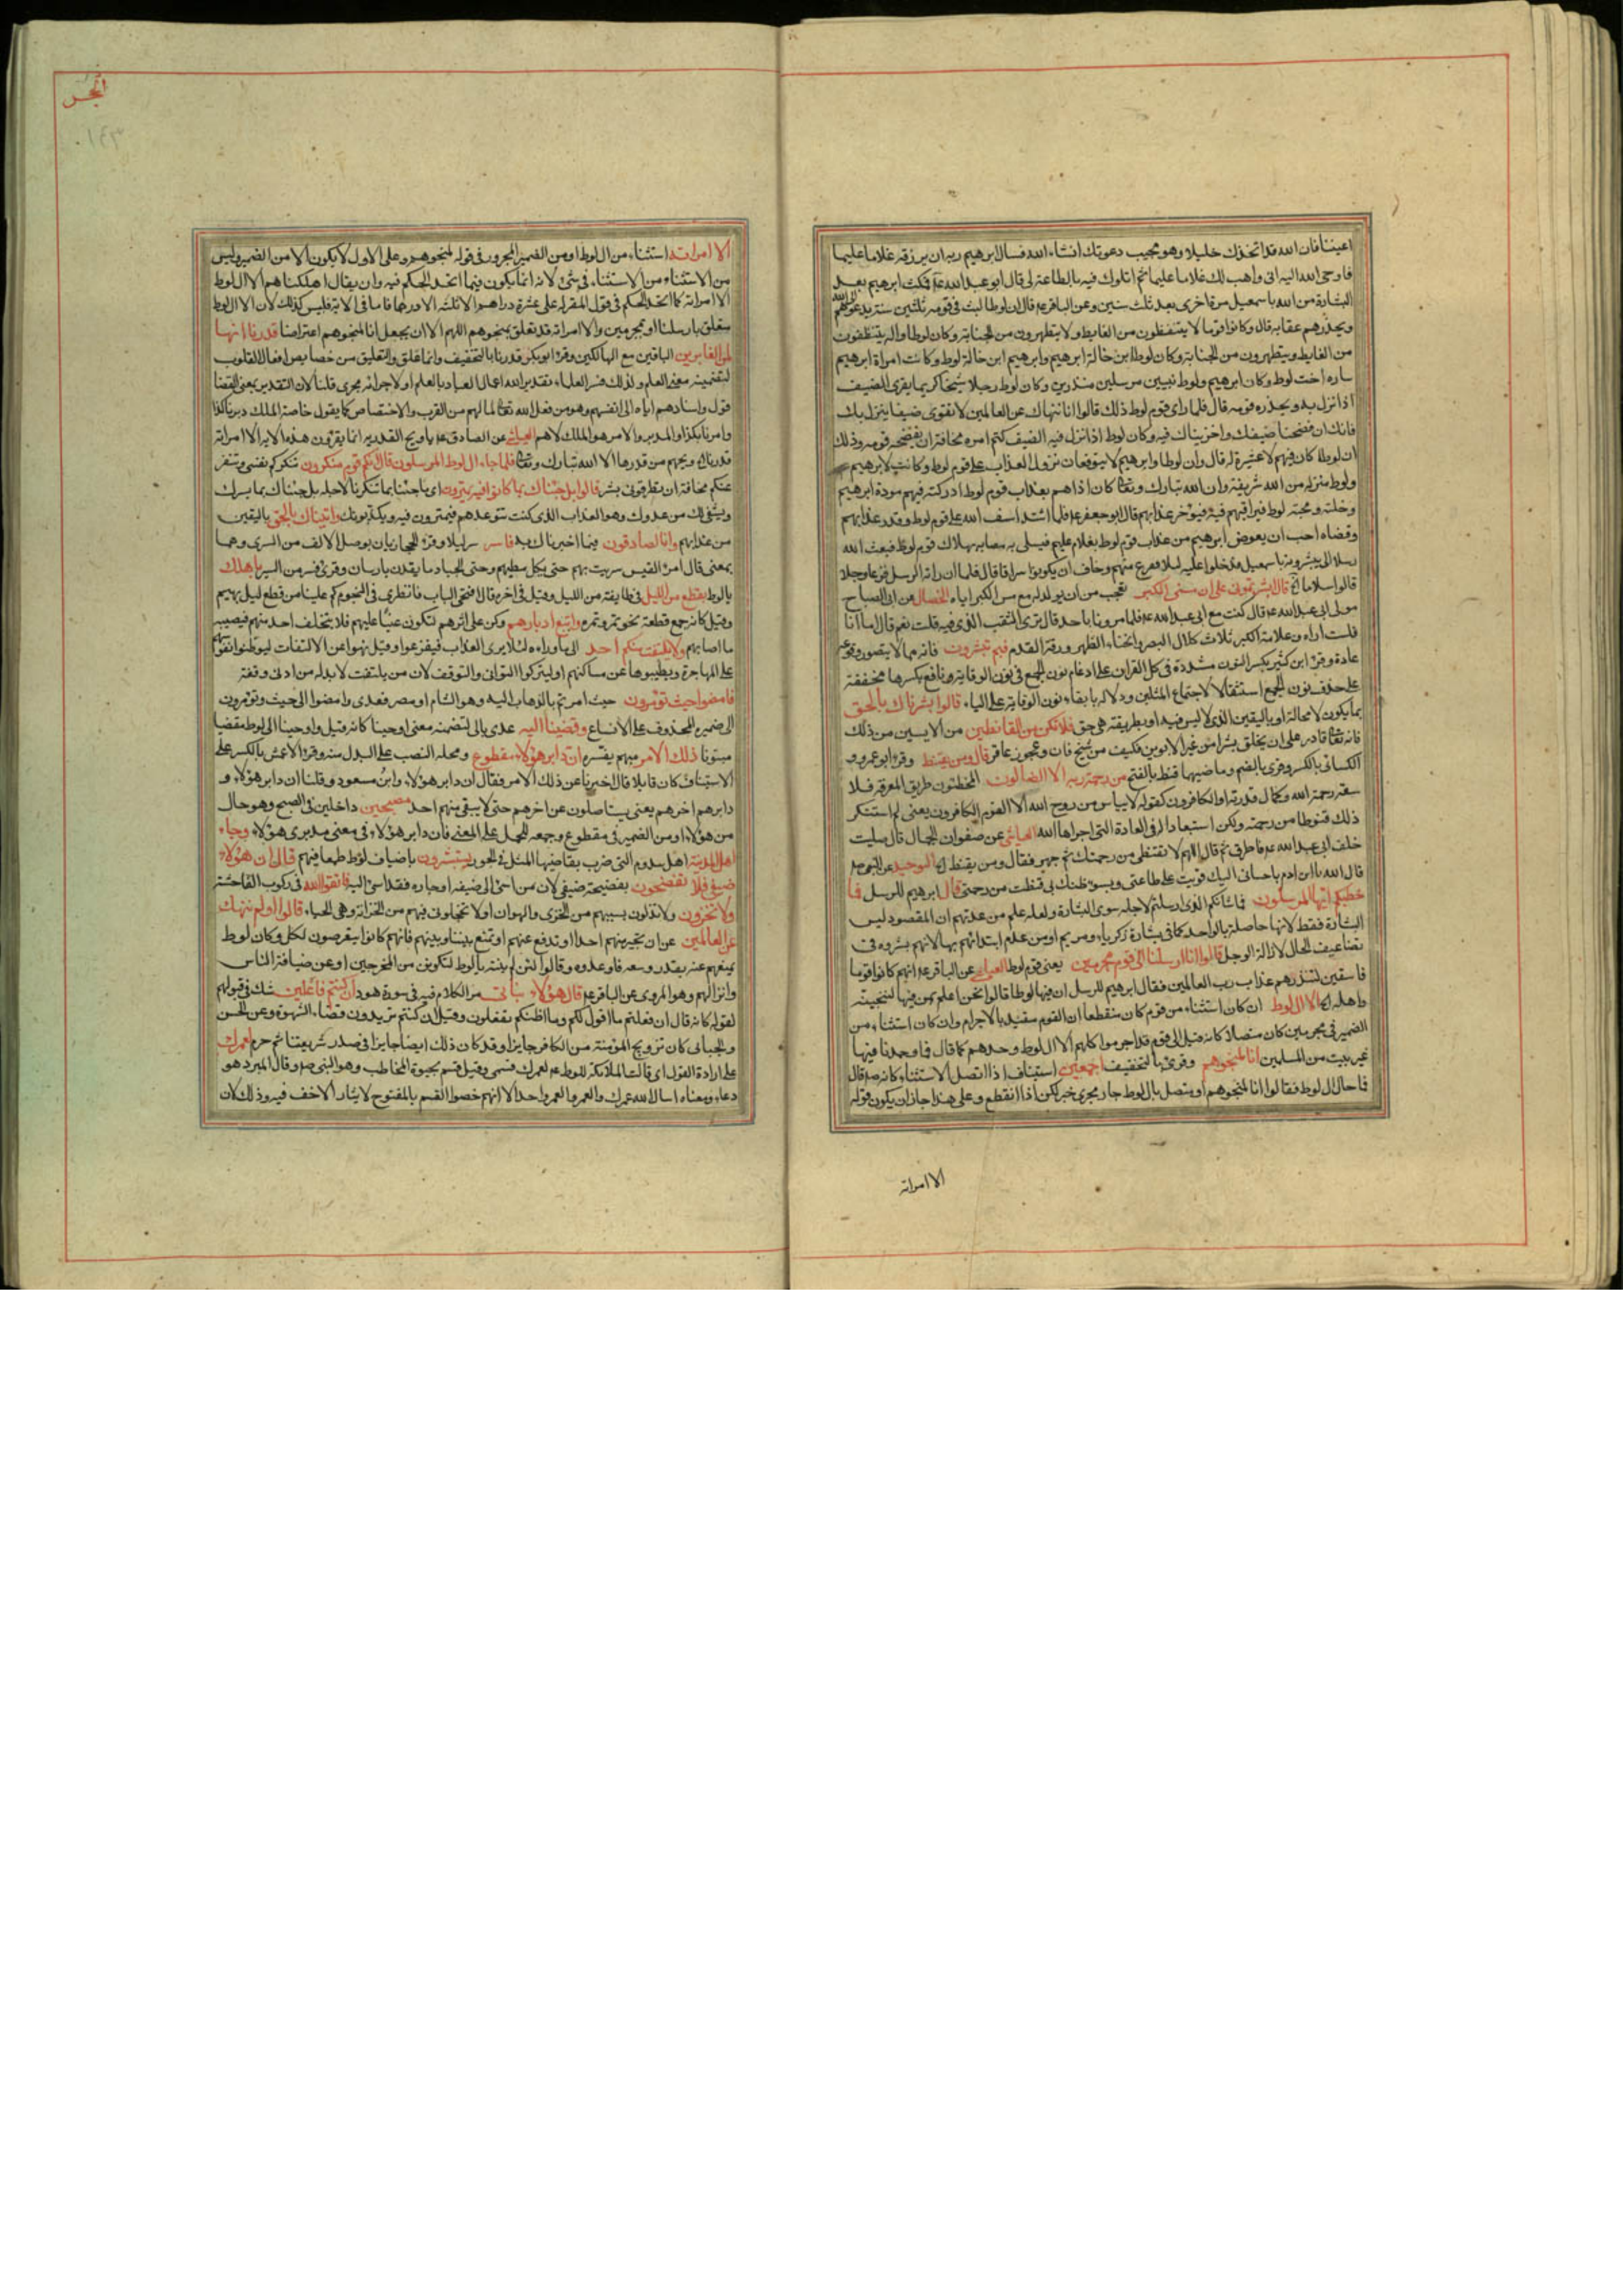 اعيننا فان الله قد اتخذك خليلا وهو مجيب دعوتك انشاء الله فسال ابرهيم ربه ان يرزقه غلاما عليما
فاوحى الله اليه انى واهب لك غلاما عليما ثم ابلوك فيه بالطاعة لى قال ابو عبد الله ع فمكث ابرهيم بعد
البشارة من الله باسمعيل مرة اخرى بعد ثلث سنين وعن الباقر ع قال ان لوطا لبث فى قومه ثلثين سنة يدعوهم الى الله
ويحذرهم عقابه قال وكانوا قوما لا يتنظفون من الغايط ولا يتطهرون من الجنابة وكان لوط واله يتنظفون
من الغايط ويتطهرون من الجنابة وكان لوط ابن خالة ابرهيم وابرهيم ابن خالة لوط وكانت امراة ابرهيم
ساره اخت لوط وكان ابرهيم ولوط نبيين مرسلين منذرين وكان لوط رجلا سخيا كريما يقرى الضيف
اذا نزل به ويحذره قومه قال فلما راى قوم لوط ذلك قالوا انا ننهاك عن العالمين لا تقرى ضيفا ينزل بك
فانك ان فضحنا ضيفك واخزيناك فيه وكان لوط اذا نزل فيه الضيف كتم امره مخافة ان يفضحه قومه وذلك
ان لوطا كان فيهم لا عشيرة له قال وان لوطا وابرهيم لا يتوقعان نزول العذاب على قوم لوط وكانت لابرهيم
ولوط منزلة من الله شريفة وان الله تبارك وتعا كان اذا هم بعذاب قوم لوط ادركته فيهم مودة ابرهيم
وخلته ومحبة لوط فيراقبهم فيه فيؤخر عذابهم قال ابو جعفر ع فلما اشتد اسف الله على قوم لوط وقدر عذابهم
وقضاه احب ان يعوض ابرهيم من عذاب قوم لوط بغلام عليم فيسلى به مصابه بهلاك قوم لوط فبعث الله
رسلا الى يبشرونه باسمعيل فدخلوا عليه ليلا ففزع منهم وخاف ان يكونوا سراقا قال فلما ان راته الرسل فزعا وجلا
قالوا سلاما الخ قال ابشرتمونى على ان مسنى الكبر تعجب من ان يولد له مع مس الكبر اياه الخصال عن ابى الصباح
مولى ابى عبد الله ع قال كنت مع ابى عبد الله ع فلما مررنا باحد قال ترى الثقب الذى فيه قلت نعم قال اما انا
فلست اراه وعلامة الكبر ثلاث كلال البصر وانحناء الظهر ورقة القدم فبم تبشرون فانه مما لا يتصور وقوعه
عادة وقرء ابن كثير بكسر النون مشددة فى كل القران على ادغام نون الجمع فى نون الوقاية ونافع بكسرها مخففة
على حذف نون الجمع استثقالا لاجتماع المثلين ودلالة بابقاء نون الوقاية على الياء قالوا بشرناك بالحق
بما يكون لا محالة او باليقين الذى لا لبس فيه او بطريقة هى حق فلا تكن من القانطين من الايسين من ذلك
فانه تعا قادر على ان يخلق بشرا من غير الابوين فكيف من شيخ فان وعجوز عاقر قال ومن يقنط وقرء ابو عمرو و
الكسائى بالكسر وقرئ بالضم وماضيهما قنط بالفتح من رحمة ربه الا الضالون المخطئون طريق المعرفة فلا
سعة رحمة الله وكمال قدرته او الكافرون كقوله لا ييأس من روح الله الا القوم الكافرون يعنى لم استنكر
ذلك قنوطا من رحمته ولكن استبعادا له فى العادة التى اجراها الله العياشى عن صفوان الجمال قال صليت
خلف ابى عبد الله ع فاطرق ثم قال اللهم لا تقنطنى من رحمتك ثم جهر فقال ومن يقنط الخ التوحيد عن النبى ص
قال الله يا ابن ادم باحسانى اليك قويت على طاعتى وبسوء ظنك بى قنطت من رحمتى قال ابرهيم للرسل فما
خطبكم ايها المرسلون فما شأنكم الذى ارسلتم لاجله سوى البشارة ولعله علم من عدتهم ان المقصود ليس
البشارة فقط لانها حاصلة بالواحد كما فى بشارة زكريا ومريم او من علم ابتدائهم بها لانهم بشروه فى
تضاعيف الحال لازالة الوجل قالوا انا ارسلنا الى قوم مجرمين يعنى قوم لوط العياشى عن الباقر ع انهم كانوا قوما
فاسقين لننذرهم عذاب رب العالمين فقال ابرهيم للرسل ان فيها لوطا قالوا نحن اعلم بمن فيها لننجينه
واهله الخ الا ال لوط ان كان استثناء من قوم كان منقطعا ان القوم مقيد بالاجرام وان كان استثناء من
الضمير فى مجرمين كان متصلا كانه قيل الى قوم قد اجرموا كلهم الا ال لوط وحدهم كما قال فما وجدنا فيها
غير بيت من المسلمين انا لمنجوهم وقرئ بالتخفيف اجمعين استيناف اذا اتصل الاستثناء وكانه ص قال
فما حال ال لوط فقالوا انا لمنجوهم او متصل بال لوط جار مجرى خبر لكن اذا انقطع وعلى هذا جاز ان يكون قوله
الا امراته
الحجر
١٤٣
الا امراته استثناء من ال لوط او من الضمير المجرور فى قوله لمنجوهم وعلى الاول لا يكون الا من الضمير وليس
من الاستثناء من الاستثناء فى شئ لانه انما يكون فيما اتحد الحكم فيه وان يقال اهلكناهم الا ال لوط
الا امراته كما اتحد الحكم فى قول المقر له على عشرة دراهم الا ثلثه الا درهما فاما فى الاية فليس كذلك لان الا ال لوط
متعلق بارسلنا او بمجرمين والا امراته قد تعلق بمنجوهم اللهم الا ان يجعل انا لمنجوهم اعتراضا قدرنا انها
لمن الغابرين الباقين مع الهالكين وقرء ابو بكر قدرنا بالتخفيف وانما علق والتعليق من خصايص افعال القلوب
لتضمينه معنى العلم ولذلك فسر العلماء تقدير الله اعمال العباد بالعلم او لاجرائه مجرى قلنا لان التقدير بمعنى القضا
قول واسنادهم اياه الى انفسهم وهو من فعل الله تعا لما لهم من القرب والاختصاص كما يقول خاصة الملك دبرنا كذا
وامرنا بكذا والمدبر والامر هو الملك لا هم العياشى عن الصادق ع يا ويح القدريه انما يقرؤن هذه الاية الا امراته
قدرناها ويحهم من قدرها الا الله تبارك وتعا فلما جاء ال لوط المرسلون قال انكم قوم منكرون تنكركم نفسى وتنفر
عنكم مخافة ان تطرقونى بشر قالوا بل جئناك بما كانوا فيه يمترون اى ما جئنا بما تنكرنا لاجله بل جئناك بما يسرك
ويشفى لك من عدوك وهو العذاب الذى كنت تتوعدهم فيمترون فيه ويكذبونك واتيناك بالحق باليقين
من عذابهم وانا لصادقون فيما اخبرناك به فاسر سر ليلا وقرء الحجازيان بوصل الالف من السرى وهما
بمعنى قال امرء القيس سريت بهم حتى يكل مطيهم وحتى الجياد ما يقدن بارسان وقرئ فسر من السير باهلك
يا لوط بقطع من الليل فى طايفة من الليل وقيل فى اخره قال افتحى الباب فانظرى فى النجوم كم علينا من قطع ليل بهيم
وقيل كانه جمع قطعة نحو تمر وتمره واتبع ادبارهم وكن على اثرهم لتكون عينا عليهم فلا يتخلف احد منهم فيصيبه
ما اصابهم ولا يلتفت منكم احد الى ما وراءه لئلا يرى العذاب فيفزعوا وقيل نهوا عن الالتفات ليوطنوا نفوسهم
على المهاجرة ويطيبوها عن مساكنهم او ليتركوا التوانى والتوقف لان من يلتفت لا بد له من ادنى وقفة
فامضوا حيث تؤمرون حيث امرتم بالذهاب اليه وهو الشام او مصر فعدى وامضوا الى حيث وتؤمرون
الى ضميره المحذوف على الاتساع وقضينا اليه عدى بالى لتضمنه معنى اوحينا كانه قيل واوحينا الى لوط مقضيا
مبتوتا ذلك الامر مبهم يفسره ان دابر هؤلاء مقطوع ومحله النصب على البدل منه وقرء الاعمش بالكسر على
الاستيناف كان قايلا قال اخبرنا عن ذلك الامر فقال ان دابر هؤلاء وابن مسعود وقلنا ان دابر هؤلاء و
دابرهم اخرهم يعنى يستاصلون عن اخرهم حتى لا يبقى منهم احد مصبحين داخلين فى الصبح وهو حال
من هؤلاء او من الضمير فى مقطوع وجمعه للحمل على المعنى فان دابر هؤلاء فى معنى مدبرى هؤلاء وجاء
اهل المدينة اهل سدوم التى ضرب بقاضيها المثل فى الجور يستبشرون باضياف لوط طمعا فيهم قال ان هؤلاء
ضيفى فلا تفضحون بفضيحة ضيفى لان من اسئ الى ضيفه او جاره فقد اسئ اليه فاتقوا الله فى ركوب الفاحشة
ولا تخزون ولا تذلون بسببهم من الخزى والهوان او لا تخجلونى فيهم من الخزاية وهى الحياء قالوا اولم ننهك
عن العالمين عن ان تجير منهم احدا او تدفع عنهم او تمنع بيننا وبينهم فانهم كانوا يتعرضون لكل وكان لوط
يمنعهم عنه بقدر وسعه فاوعدوه وقالوا لئن لم تنته يا لوط لتكونن من المخرجين او عن ضيافة الناس
وانزالهم وهو المروى عن الباقر ع قال هؤلاء بناتى مر الكلام فيه فى سورة هود ان كنتم فاعلين شك فى قبولهم
لقوله كانه قال ان فعلتم ما اقول لكم وما اظنكم تفعلون وقيل ان كنتم تريدون قضاء الشهوة وعن الحسن
والجبائى كان تزويج المؤمنة من الكافر جايزا وقد كان ذلك ايضا جايزا فى صدر شريعتنا ثم حرم لعمرك
على ارادة القول اى قالت الملائكة للوط ع لعمرك قسمى وقيل قسم بحيوة المخاطب وهو النبى ص وقال المبرد هو
دعاء ومعناه اسال الله عمرك والعمر والعمر واحد الا انهم خصوا القسم بالمفتوح لايثار الاخف فيه وذلك لان